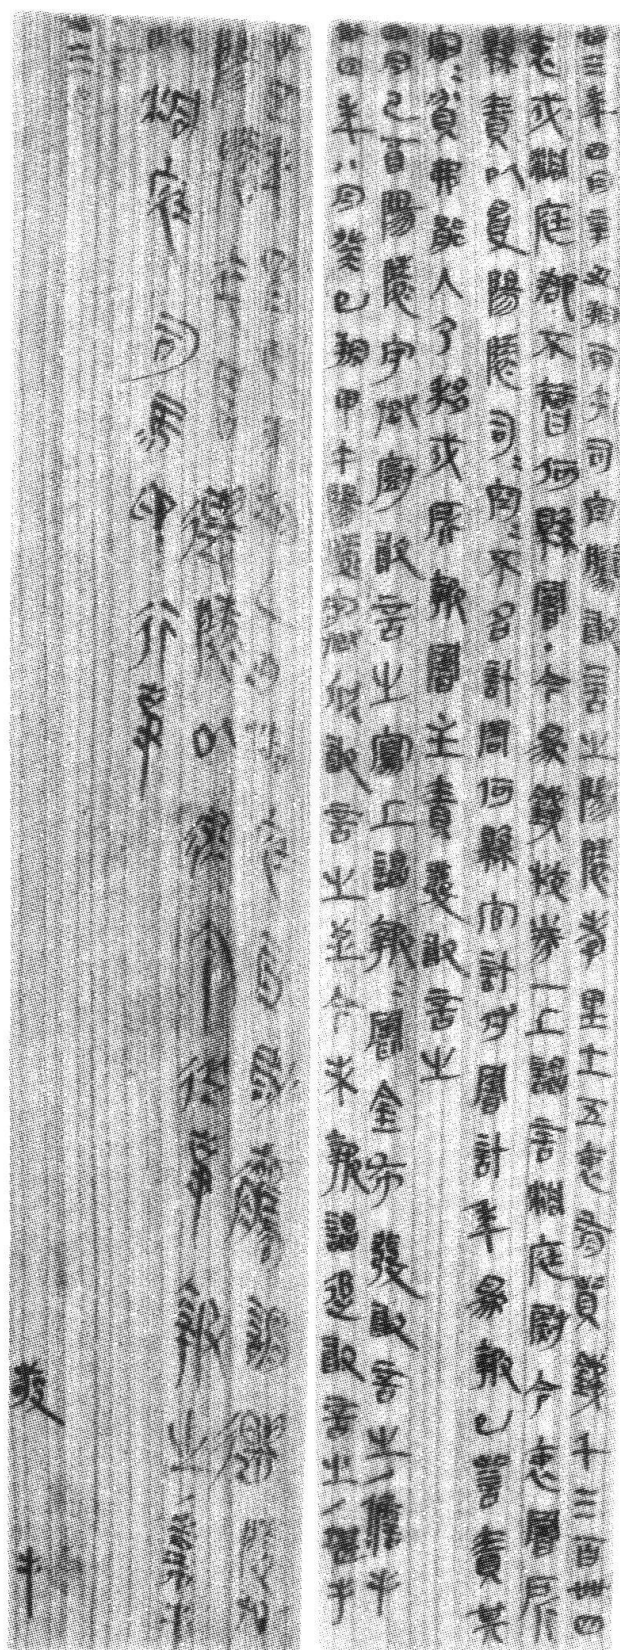 卅三年四月辛丑朔丙午司空騰敢言之陽陵孝里士五衷有貲錢千三百卌四
衷戍洞庭郡不智何縣署·今爲錢校券一上謁言洞庭尉令衷署所
縣責以受陽陵司=空=不名計問何縣官計付署計年爲報已訾責其
家=貧弗能入乃移戍所報署主責發敢言之
四月己酉陽陵守丞廚敢言之寫上謁報=署金布發敢言之/儋手
卅四年八月癸巳朔甲午陽陵守丞欣敢言之至今未報謁追敢言之/堪手
卅五年四月己未朔乙丑洞庭叚尉觿謂遷陵丞
陽陵卒署遷陵以律令從事報之嘉手
以洞庭司馬印行事
敬手